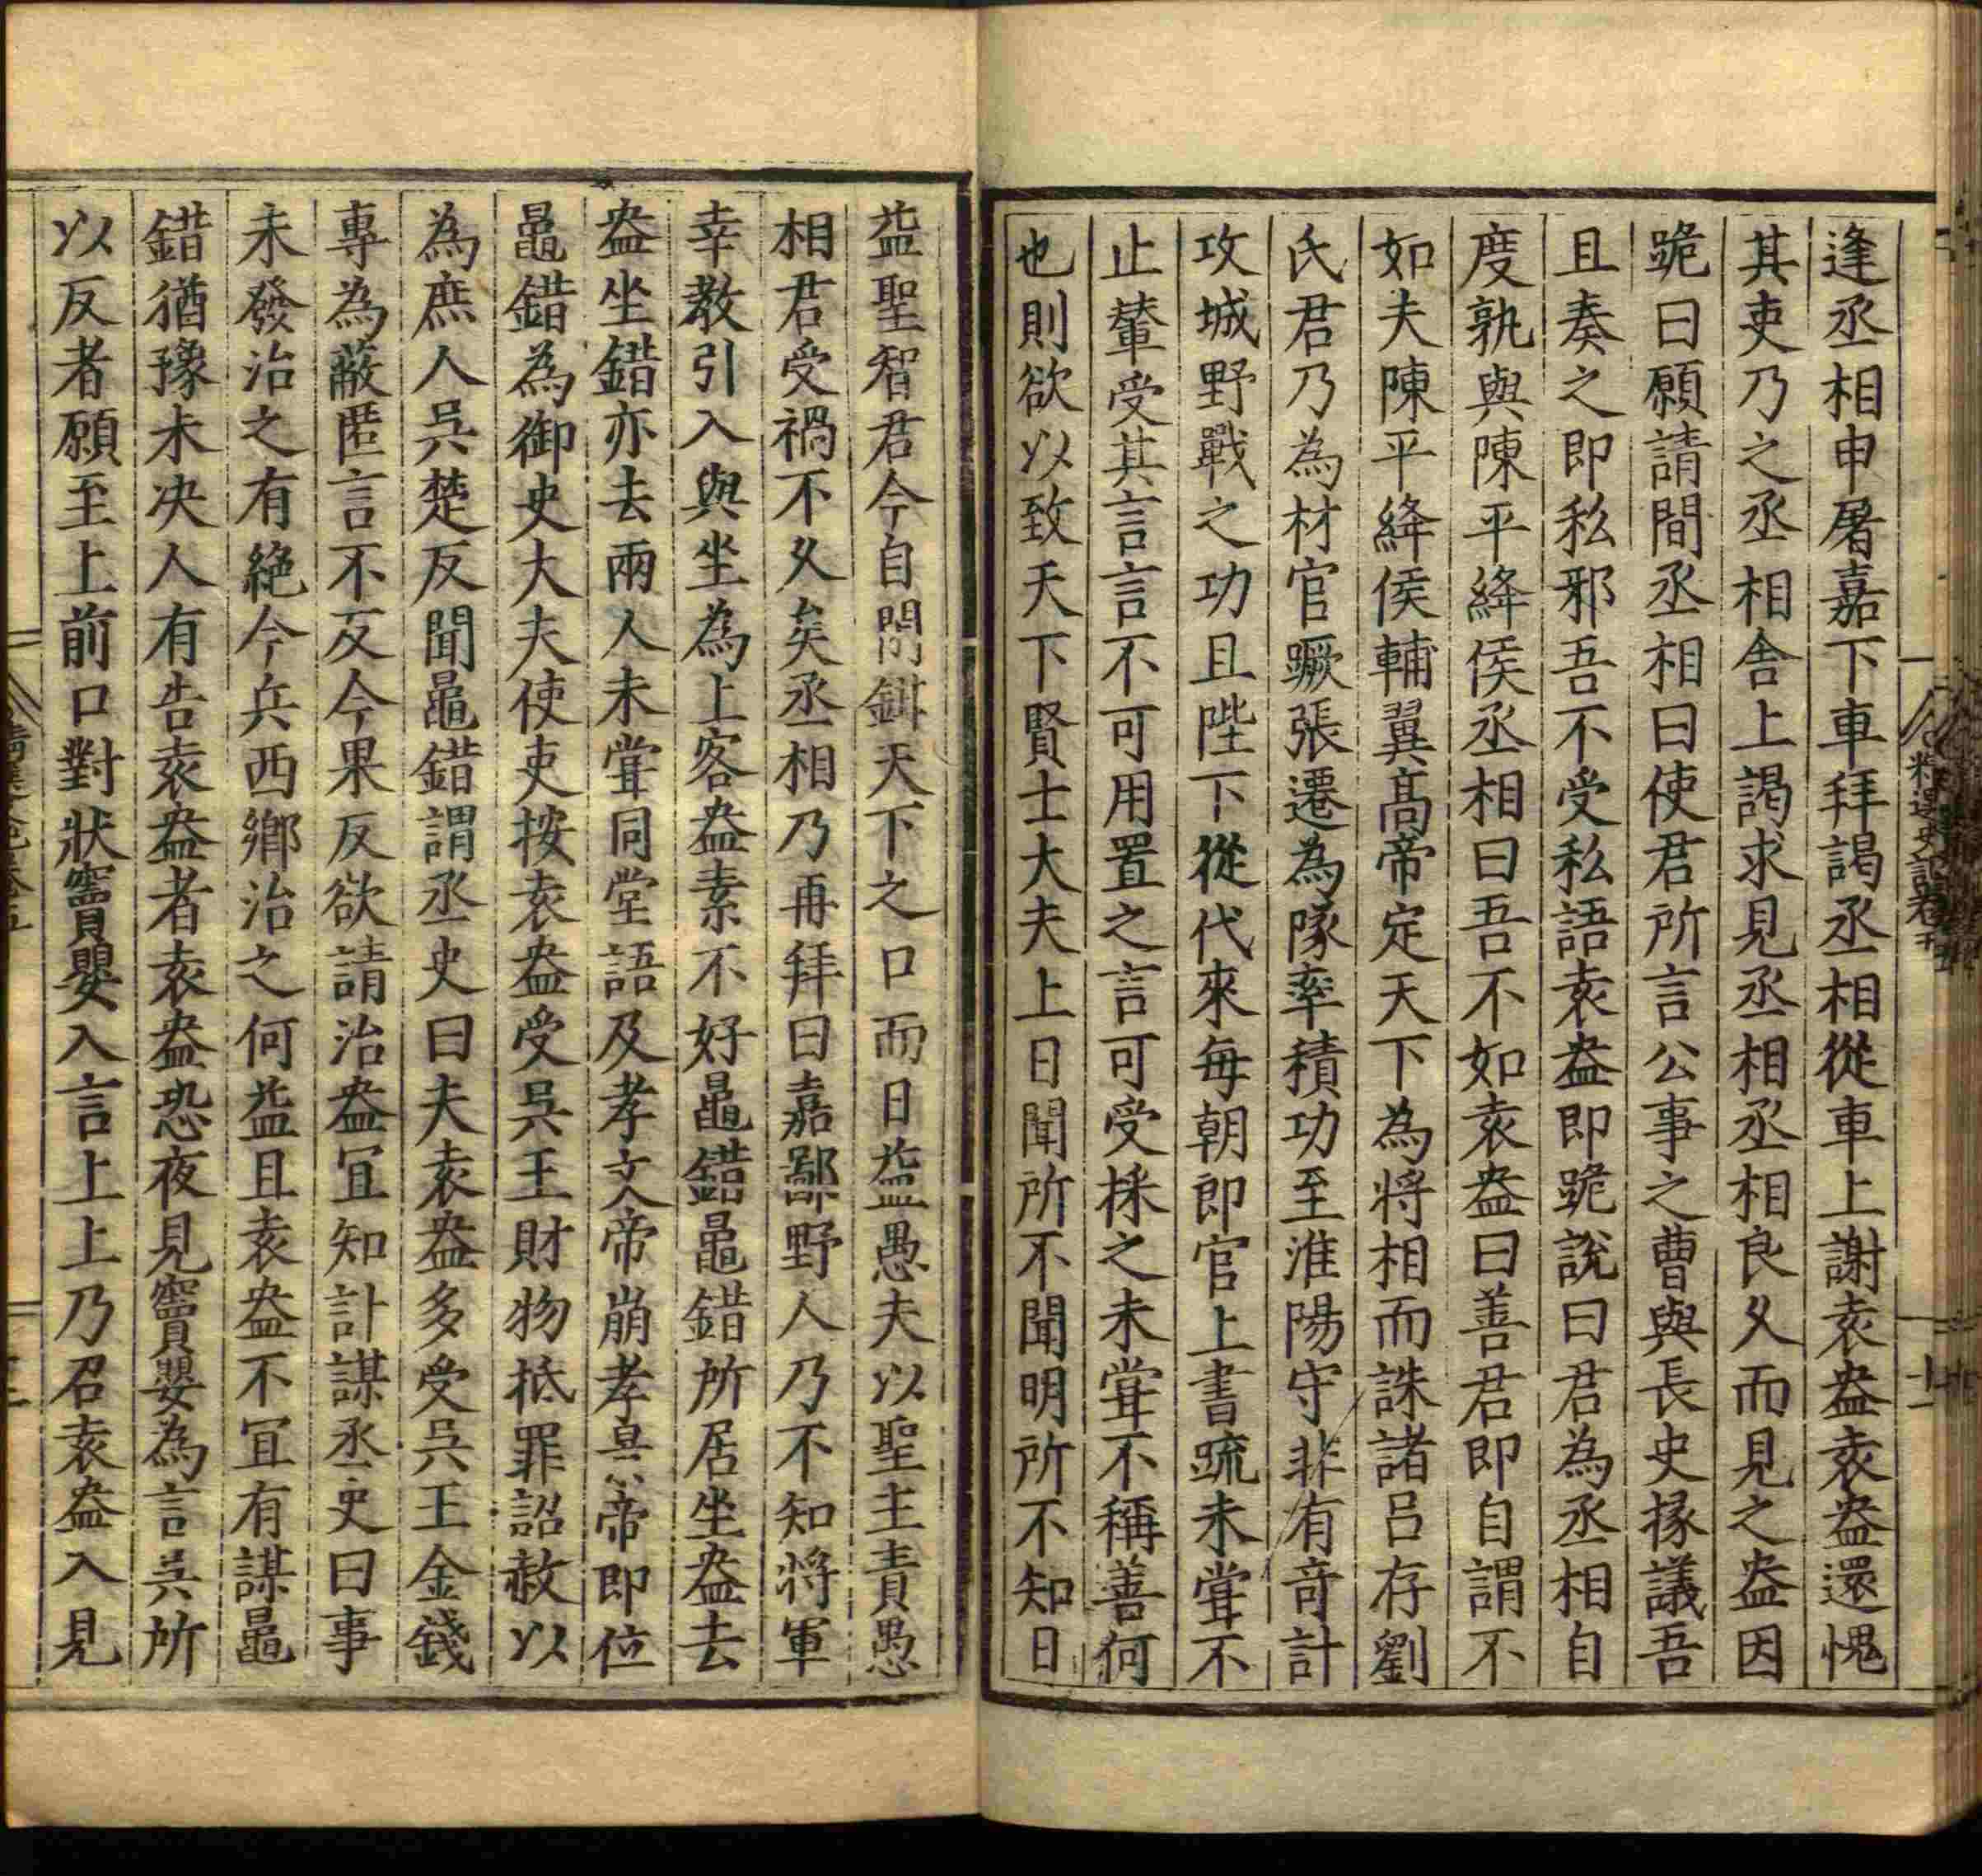 逢丞相申屠嘉下車拜謁丞相從車上謝袁盎袁盎還愧
其吏乃之丞相舍上謁求見丞相丞相良久而見之盎因
跪曰願請間丞相曰使君所言公事之曹與長史掾議吾
且奏之即私邪吾不受私語袁盎即跪說曰君為丞相自
度孰與陳平絳侯丞相曰吾不如袁盎曰善君即自謂不
如夫陳平絳侯輔翼高帝定天下為將相而誅諸呂存劉
氏君乃為材官蹶張遷為隊率積功至淮陽守非有奇計
攻城野戰之功且陛下從代來每朝即官上書疏未甞不
止輦受其言言不可用置之言可受採之未甞不稱善何
也則欲以致天下賢士大夫上日聞所不聞明所不知日
益聖智君今自閉鉗天下之口而日益愚夫以聖主責愚
相君受禍不久矣丞相乃再拜曰嘉鄙野人乃不知將軍
幸教引入與坐為上客盎素不好鼂錯鼂錯所居坐盎去
盎坐錯亦去兩人未甞同堂語及孝文帝崩孝景帝即位
鼂錯為御史大夫使吏按袁盎受吳王財物抵罪詔赦以
為庶人吳楚反聞鼂錯謂丞史曰夫袁盎多受吳王金錢
專為蔽匿言不反今果反欲請治盎冝知計謀丞史曰事
未發治之有絶今兵西鄉治之何益且袁盎不冝有謀鼂
錯猶豫未決人有告袁盎者袁盎恐夜見竇嬰為言吳所
以反者願至上前口對狀竇嬰入言上上乃召袁盎入見
精選史記卷五
十一